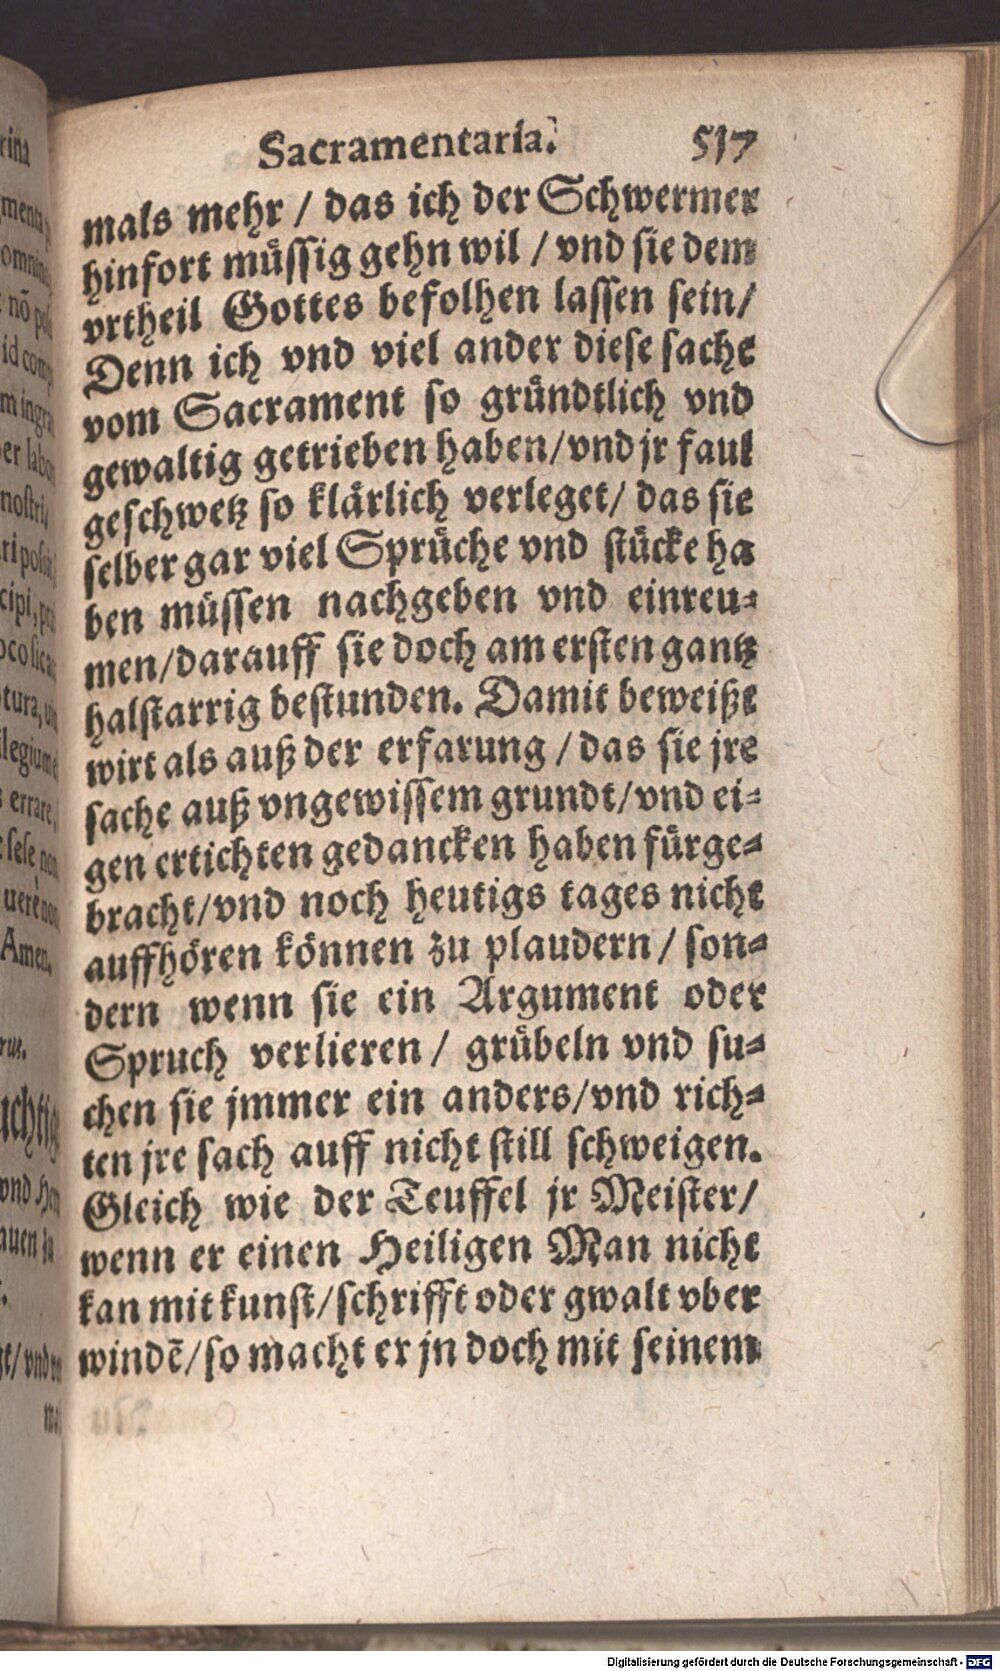 Sacramentaria. 517
mals mehr / das ich der Schwermer
hinfort müssig gehn wil / vnd sie dem
vrtheil Gottes befolhen lassen sein/
Denn ich vnd viel ander diese sache
vom Sacrament so gründtlich vnd
gewaltig getrieben haben/vnd jr faul
geschwetz so klärlich verleget/ das sie
selber gar viel Sprüche vnd stücke ha
ben müssen nachgeben vnd einreu-
men/darauff sie doch am ersten gantz
halstarrig bestunden. Damit beweißt
wirt als auß der erfarung / das sie jre
sache auß vngewissem grundt/vnd ei-
gen ertichten gedancken haben fürge-
bracht/vnd noch heutigs tages nicht
auffhören können zu plaudern / son-
dern wenn sie ein Argument oder
Spruch verlieren / grübeln vnd su-
chen sie jmmer ein anders/vnd rich-
ten jre sach auff nicht still schweigen.
Gleich wie der Teuffel jr Meister/
wenn er einen Heiligen Man nicht
kan mit kunst/schrifft oder gwalt vber
windẽ/so macht er jn doch mit seinem
Digitalisierung gefördert durch die Deutsche Forschungsgemeinschaft - DFG